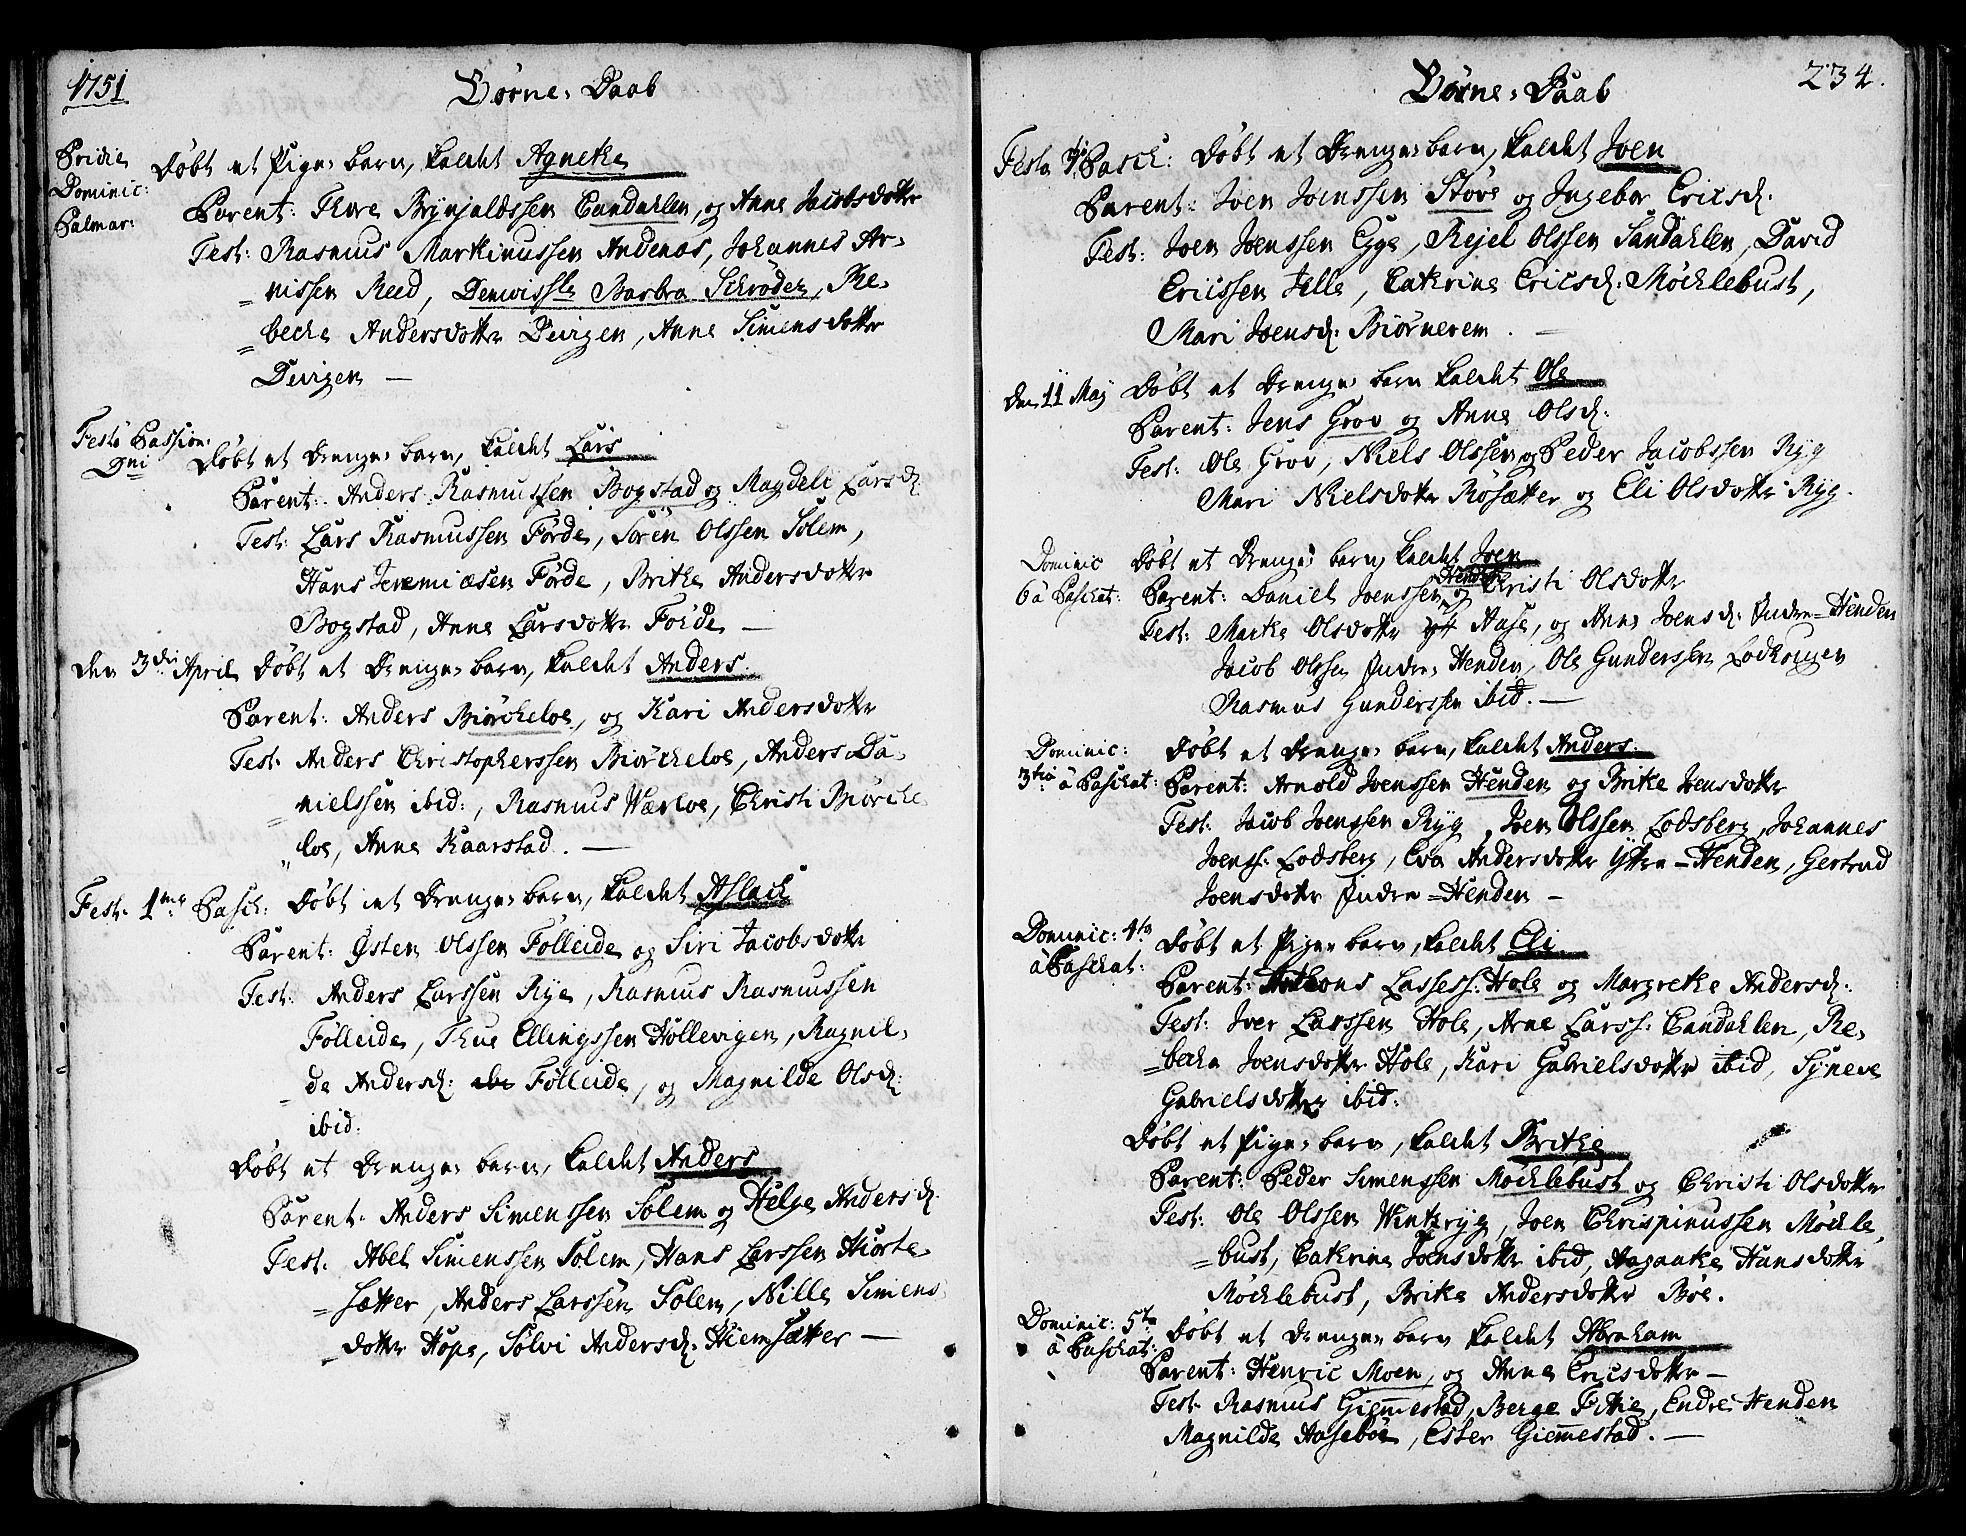 1751
Børne- Daab
Pridie Dominic: Palmar:
Døbt et Pige- barn, kaldet Agnethe
Parent: Thore Brynjaldssen Sandahlen, og Anne Jacobsdotter
Test: Rasmus Markinussen Andenæs, Johannes Ar-
nissen Reed, Barbra Schrøder, Re-
becke Andersdotter Devigen, Anne Simensdotter
Devigen —
Festo Passion: Dni
Døbt et Drenge- barn, kaldet Lars
Parent: Anders Rasmussen Bogstad og Magdeli Larsd:
Test: Lars Rasmussen Førde, Søren Olssen Solem,
Hans Jeremiæsen Førde, Brithe Andersdotter
Bogstad, Anne Larsdotter Førde —
Den 3die April
Døbt et Drenge- barn, kaldet Anders.
Parent: Anders Biørckeloe, og Kari Andersdotter
Test: Anders Christopherssen Biørckeloe, Anders Da-
nielssen ibid:, Rasmus Wærloe, Christi Biørcke-
loe, Anne Kaarstad. —
Fest. 1me Pasch:
Døbt et Drenge- barn, kaldet Aslack
Parent: Østen Olssen Følleide og Siri Jacobsdotter
Test: Anders Larssen Rye, Rasmus Rasmussen
Følleide, Thue Ellingssen Hollevigen, Ragnil-
de Andersd: Følleide, og Magnilde Olsd:
ibid:
Døbt et Drenge- barn, kaldet Anders
Parent: Anders Simenssen Solem og Helge Andersd:
Test. Abel Simenssen Solem, Hans Larssen Hiorte-
sætter, Anders Larssen Solem, Nille Simens-
dotter Hope, Sølvi Andersd: Hiemsætter —
234.
Børne- Daab
Festo Pasch:
Døbt et Drenge- barn, kaldet Joen
Parent: Joen Joenssen Støve og Ingebor Ericsd:
Test: Joen Joenssen Egge, Rejel Olssen Sandahlen, David
Ericssen Jelle, Cathrine Ericsd: Møcklebust,
Mari Joensd: Biørnerem. —
Den 11 Maj
Døbt et Drenge- barn kaldet Ole
Parent: Jens Grov og Anne Olsd:
Test: Ole Grov, Niels Olssen og Peder Jacobssen Ryg
Mari Nielsdotter Rosætter og Eli Olsdotter Ryg.
Dominic 6 à Paschat:
Døbt et Drenge- barn, kaldet Joen
Parent: Daniel Joenssen Henden og Christi Olsdotter
Test: Marte Olsdotter Aase, og Anne Joensd: Indre-Henden
Jacob Olssen Indre- Henden, Ole Gunderssen Lodkougen
Rasmus Gunderssen ibid. —
Dominic: 3tia à Paschat:
Døbt et Drenge- barn, kaldet Anders.
Parent: Arnold Joenssen Henden og Brite Joensdotter
Test. Jacob Joenssen Ryg, Joen Olssen Lodsberg, Johannes
Joenss: Lodsberg, Eva Andersdotter Yttre-Henden, Gertrud
Joensdotter Indre-Henden —
Dominic: 4ta à Paschat:
Døbt et Pige- barn, kaldet Eli
Parent: Lassess: Hole og Margrethe Andersd:
Test: Iver Larssen Hole, Arne Larss: Sandahlen, Re-
becka Joensdotter Hole, Kari Gabrielsdotter ibid, Syneve
Gabrielsdotter ibid:
Døbt et Pige- barn, kaldet Brithe
Parent: Peder Simenssen Møcklebust og Christi Olsdotter
Test: Ole Olssen Wintryg, Joen Chrispinussen Møckle-
bust, Cathrine Joensdotter ibid, Aagaathe Hansdotter
Møcklebust, Brite Andersdotter Bøe.
Dominic: 5ta à Paschat:
Døbt et Drenge- barn kaldet Abraham
Parent: Henric Moen, og Anne Ericsdotter —
Test. Rasmus Giemestad, Berge Fitie, Endre Henden
Magnilde Hasebøe, Ester Giemestad. —